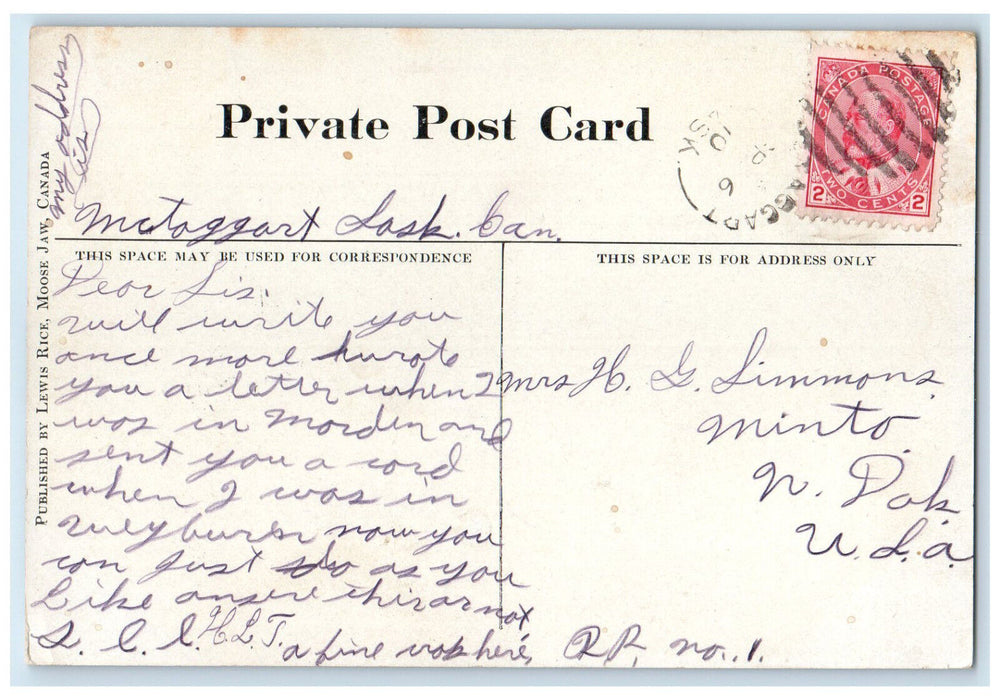 my address
is
Private Post Card
CANADA POSTAGE
2 TWO CENTS 2
AGGART
SK
Mctaggart Sask. Can.
PUBLISHED BY LEWIS RICE, MOOSE JAW, CANADA
THIS SPACE MAY BE USED FOR CORRESPONDENCE
Dear Sis.
will write you
once more I wrote
you a letter when I
was in Morden and
sent you a card
when I was in
Weyburn now you
can just do as you
like ansere thirarnot
H. L. T.
a fine crop here,
THIS SPACE IS FOR ADDRESS ONLY
Mrs H. G. Simmons.
Minto
N. Dak.
U.S.a
RR, no. 1.